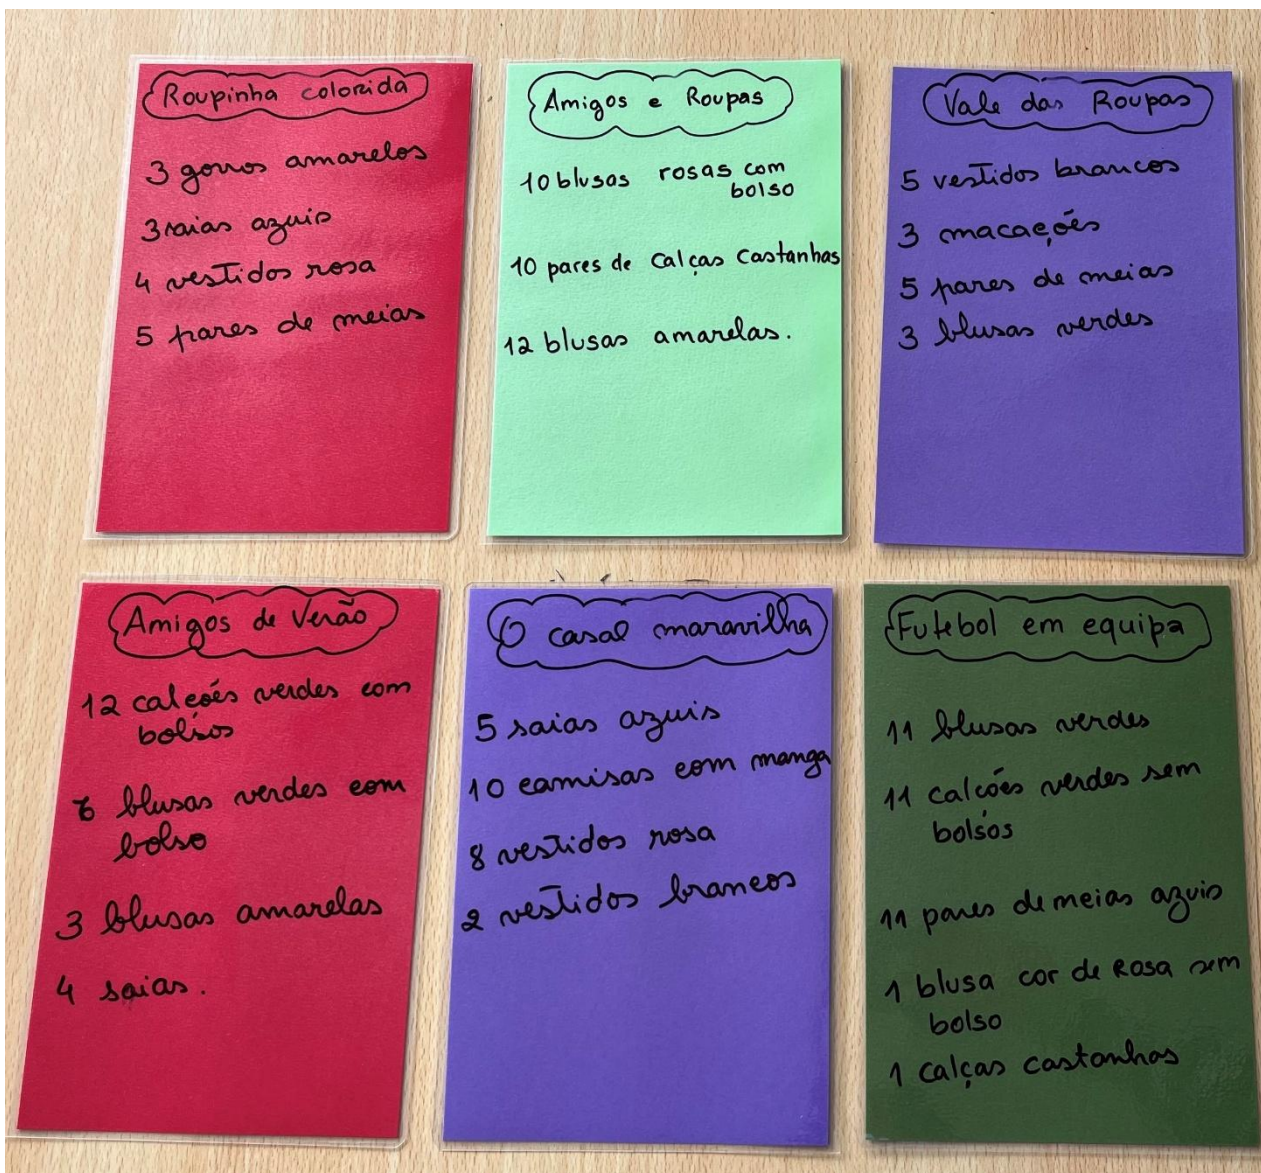 Roupinha colorida
3 gorros amarelos
3 saias azuis
4 vestidos rosa
5 pares de meias
Amigos e Roupas
10 blusas rosas com
bolso
10 pares de calças castanhas
12 blusas amarelas.
Vale das Roupas
5 vestidos brancos
3 macacões
5 pares de meias
3 blusas verdes
Amigos de Verão
12 calções verdes com
bolsos
blusas verdes com
bolso
3 blusas amarelas
4 saias.
O casal maravilha
5 saias azuis
10 camisas com manga
8 vestidos rosa
2 vestidos brancos
Futebol em equipa
11 blusas verdes
11 calções verdes sem
bolsos
11 pares de meias azuis
1 blusa cor de Rosa sem
bolso
1 calças castanhas